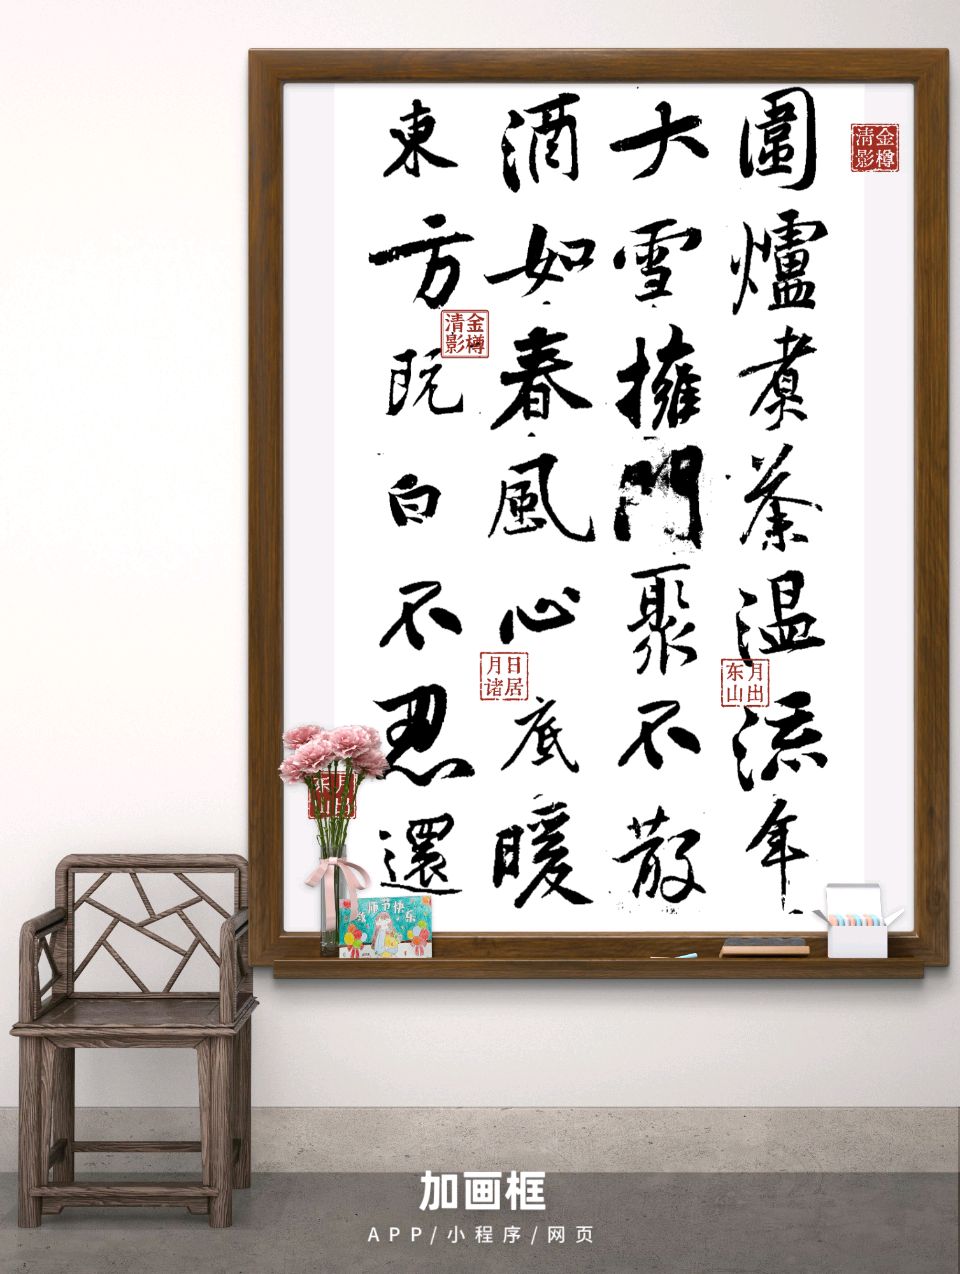 圍爐煮茶溫流年
大雪擁門聚不散
酒如春風心底暖
東方既白不忍還
金樽清影
金樽清影
日居月诸
月出东山
月出东山
教师节快乐
加画框
APP/小程序/网页